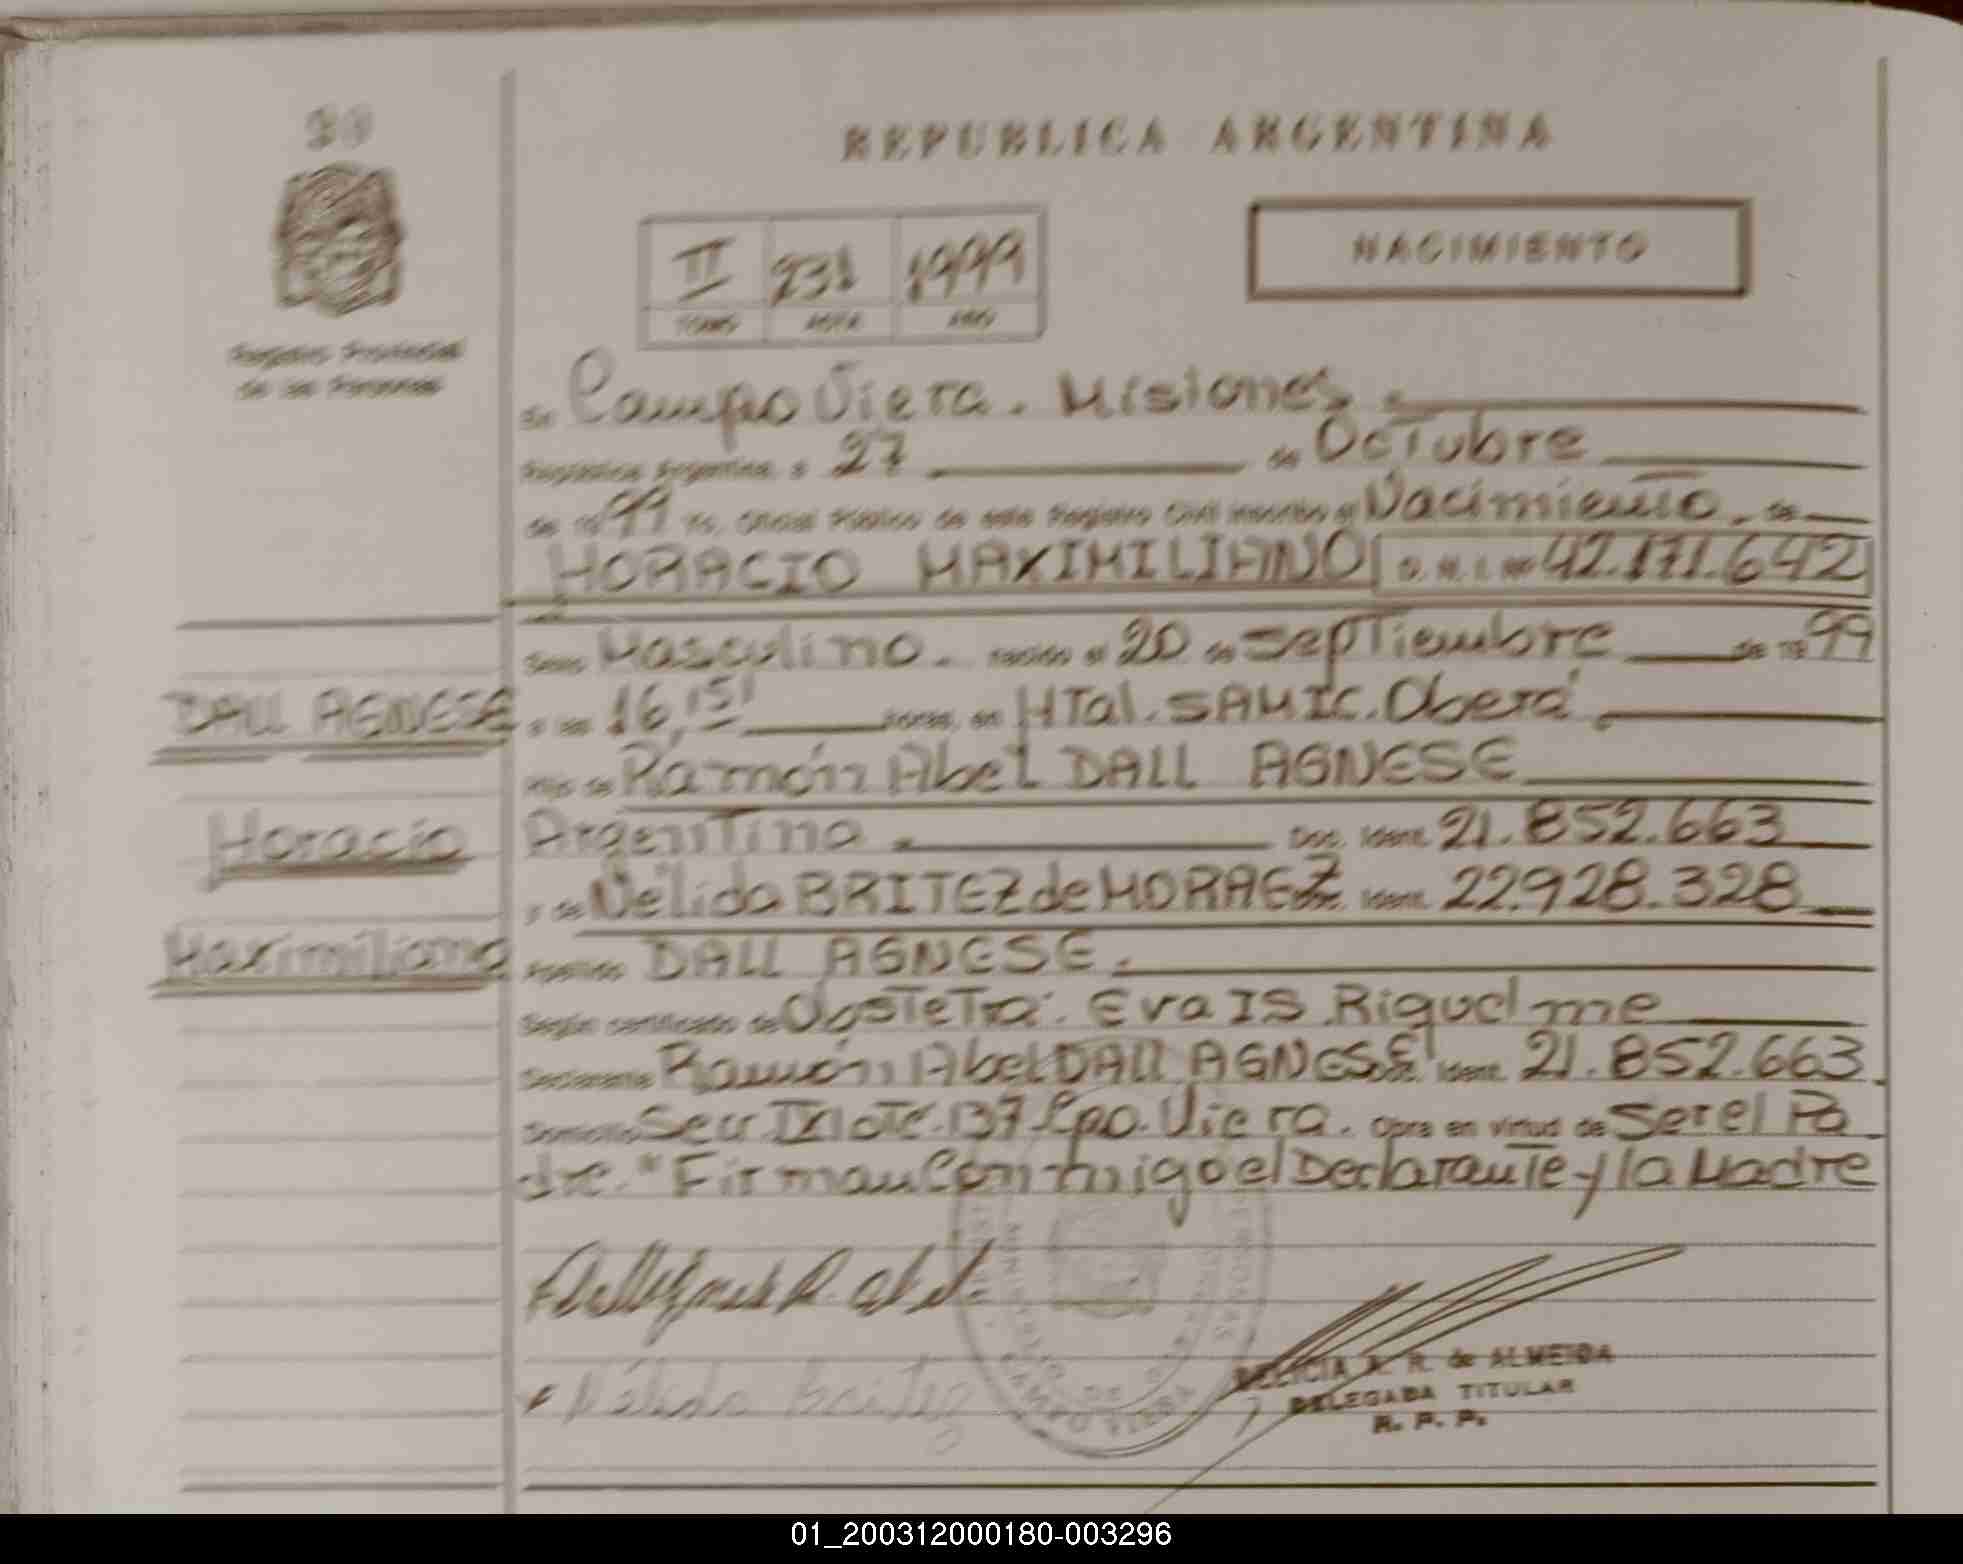 REPUBLICA ARGENTINA
NACIMIENTO
II 231 1999
TOMO ACTA AÑO
Registro Provincial
de las Personas
En Campo Viera. Misiones.
República Argentina, a 27 de Octubre
de 1999 Yo, Oficial Público de este Registro Civil inscribo el Nacimiento. de
HORACIO MAXIMILIANO D. N. I. Nº 42.171.642
Sexo Masculino. nacido el 20 de Septiembre de 1999
DALL AGNESE
a las 16,15 horas, en HTal. SAMIC. Oberá
Hijo de Ramón Abel DALL AGNESE
Horacio
Argentino. Doc. Ident. 21.852.663
y de Nélida BRITEZ de MORAEZ Doc. Ident. 22.928.328
Maximiliano
Apellido DALL AGNESE.
Según certificado de Obstetra: Eva IS. Riquelme
Declarante Ramón Abel DALL AGNESE Doc. Ident. 21.852.663
Domicilio Secc. IX lote. 137 Cpo. Viera. Obra en virtud de Ser el Pa
dre. "Firman Conmigo el Declarante y la Madre
Nélida Britez
CAMPO VIERA
DELICIA A. R. de ALMEIDA
DELEGADA TITULAR
R. P. P.
01_200312000180-003296